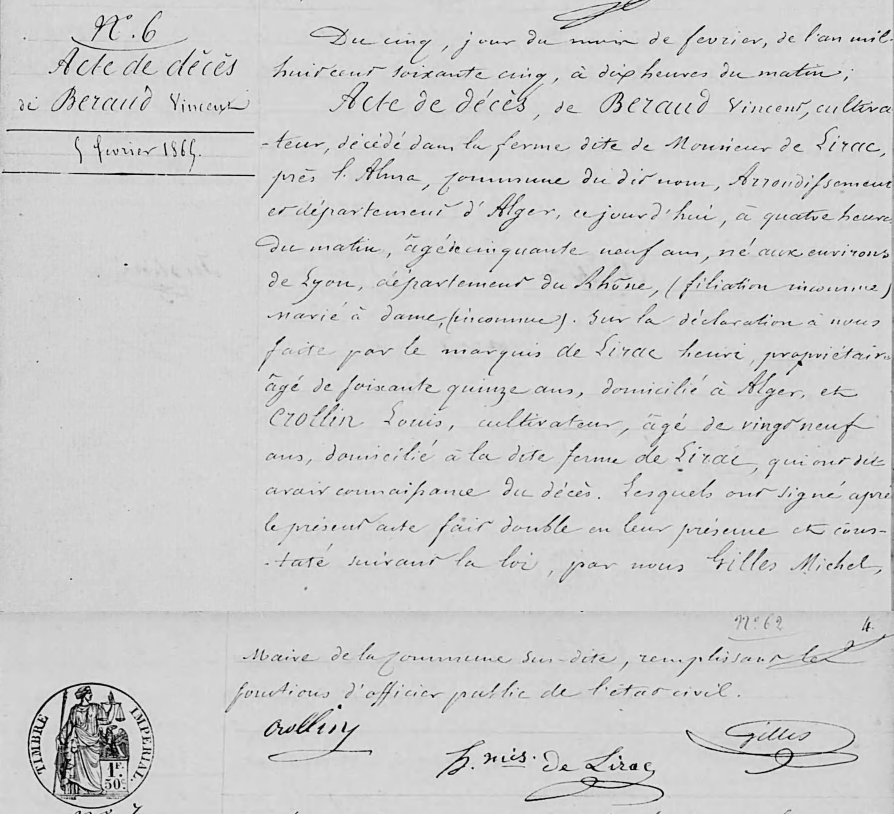 N°. 6
Acte de décès
de Beraud Vincent
5 fevrier 1865.
Du cinq, jour du mois de fevrier, de l'an mil-
huit cent soixante cinq, à dix heures du matin;
Acte de décès, de Beraud Vincent, cultiva
-teur, décédé dans la ferme dite de Monsieur de Lirac,
près l'Alma, commune du dit nom, Arrondissement
et département d'Alger, ce jourd'hui, à quatre heures
du matin, âgé de cinquante neuf ans, né aux environs
de Lyon, département du Rhône, (filiation inconnue)
marié à dame, (inconnue). Sur la déclaration à nous
faite par le marquis de Lirac henri, propriétaire
âgé de soixante quinze ans, domicilié à Alger, et
Crollin Louis, cultivateur, âgé de vingt neuf
ans, domicilié à la dite ferme de Lirac, qui ont dit
avoir connaissance du décès. Lesquels ont signé après
le présent acte fait double en leur présence et cons-
-taté suivant la loi, par nous Gilles Michel,
N° 62 4.
Maire de la commune sus-dite, remplissant les
fonctions d'officier public de l'état civil.
Crollin
Gilles
h. mis. de Lirac
TIMBRE IMPERIAL.
1F.
50c